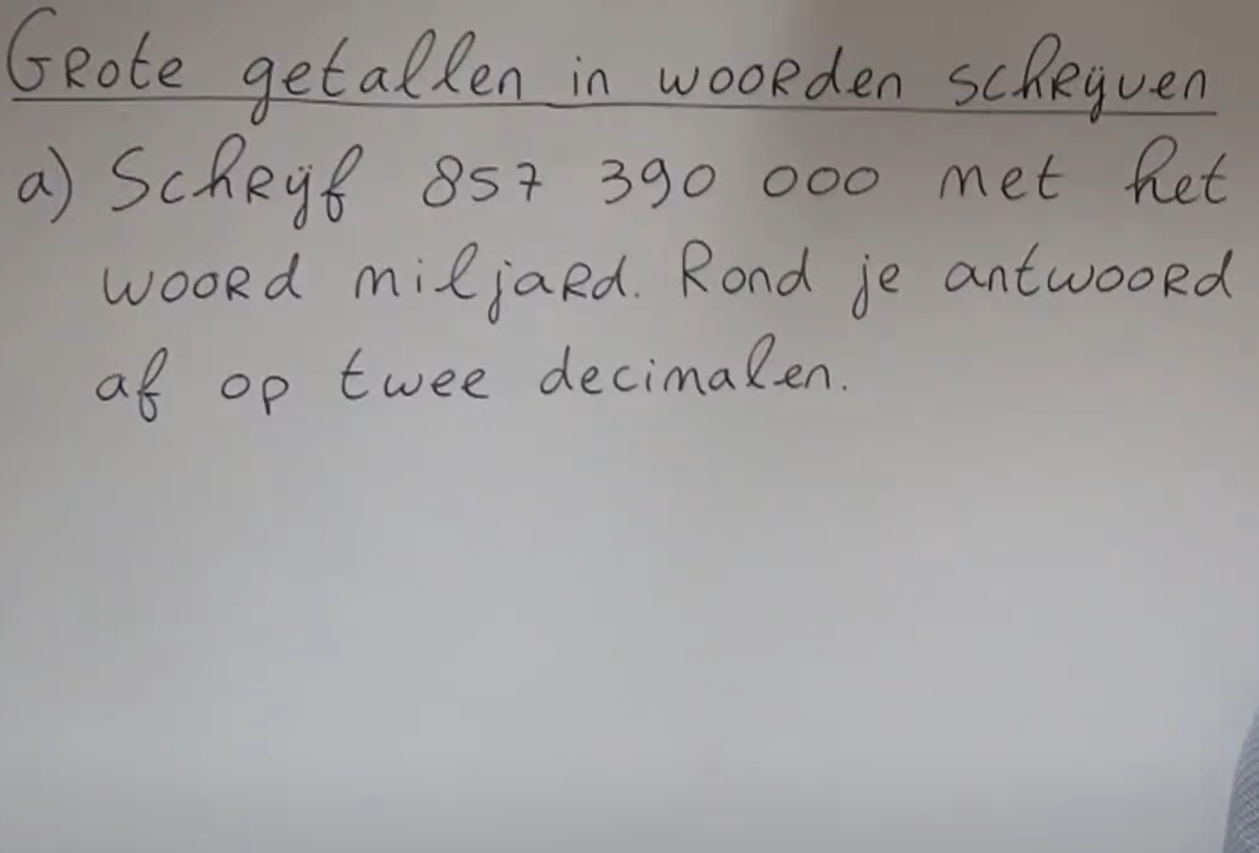 Grote getallen in woorden schrijven
a) Schrijf 857 390 000 met het
woord miljard. Rond je antwoord
af op twee decimalen.